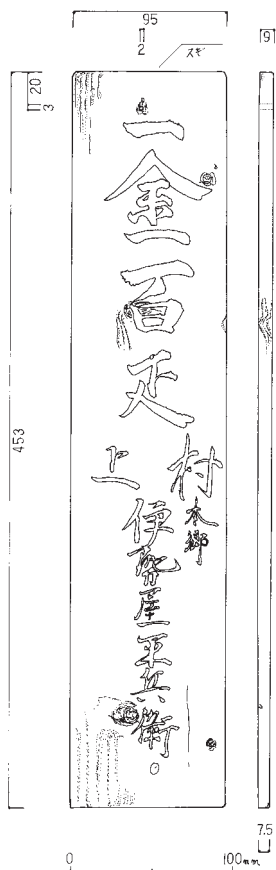 95
2
スギ
9
20
3
453
一金一百疋
村上
本郷
伊勢屋平兵衛
7.5
0 100mm